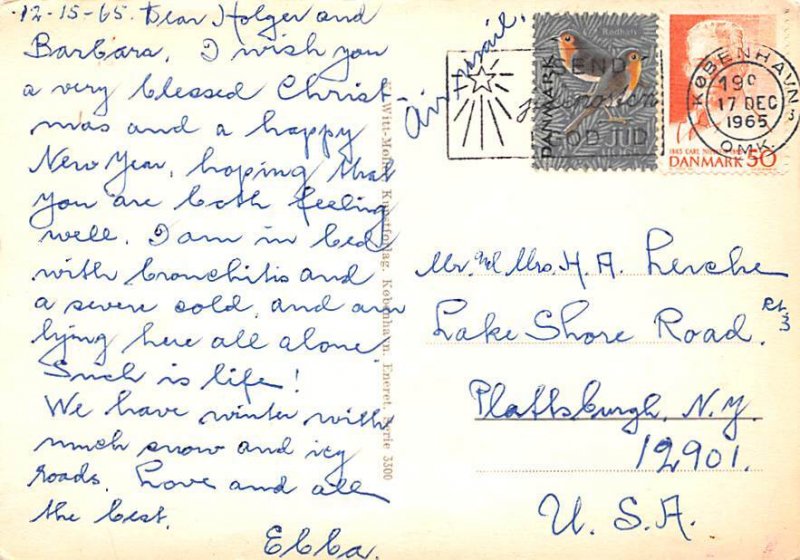 12-15-65. Dear Holger and
Barbara, I wish you
a very blessed Christ-
mas and a happy
New Year, hoping that
you are both feeling
well. I am in bed
with bronchitis and
a severe cold, and am
lying here all alone.
Such is life!
We have winter with
much snow and icy
roads. Love and all
the best.
Ebba.
Air mail.
DANMARK
Rødhals
SEND
juleposten
GOD TID
1865 CARL NIELSEN
DANMARK 50
KØBENHAVN
17 DEC
1965
OMK.
Witt-Møller Kunstforlag. København. Eneret. Serie 3300
Mr. and Mrs. H. A. Lerche
Lake Shore Road. Rt. 3
Plattsburgh, N.Y.
12901.
U.S.A.